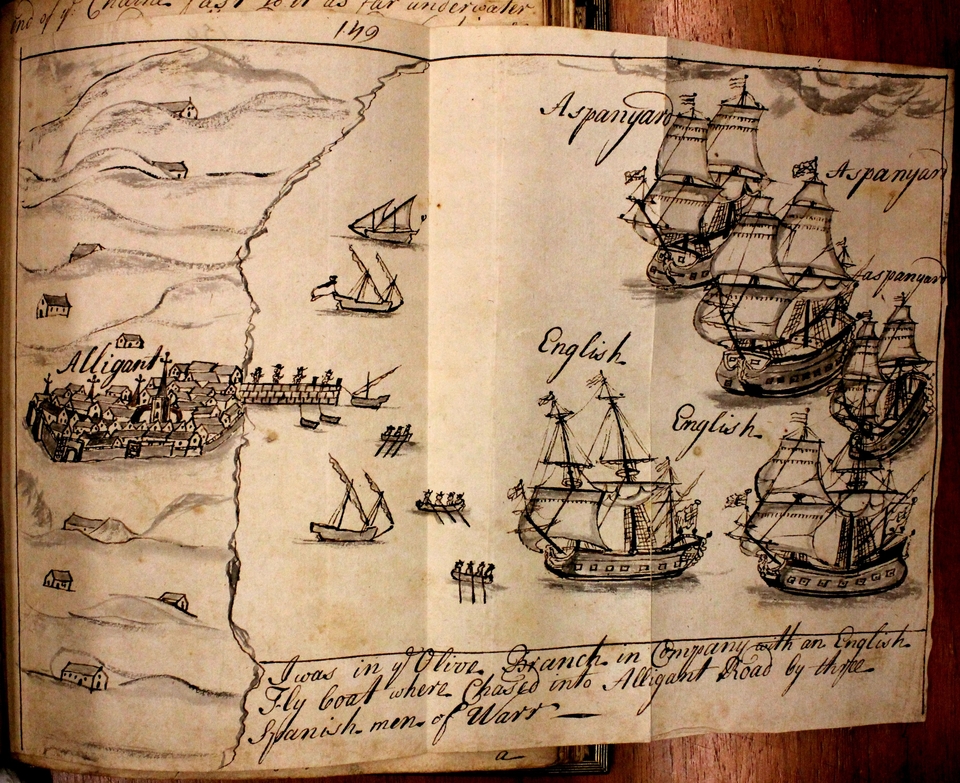 end of ye Chaine fast to it as far underwater
149
Aspanyard
Aspanyard
Aaspanyard
Alligant
English
English
I was in ye Olive Branch in Company with an English
Fly boat where Chased into Alligant Road by three
Spanish men of Warr
a